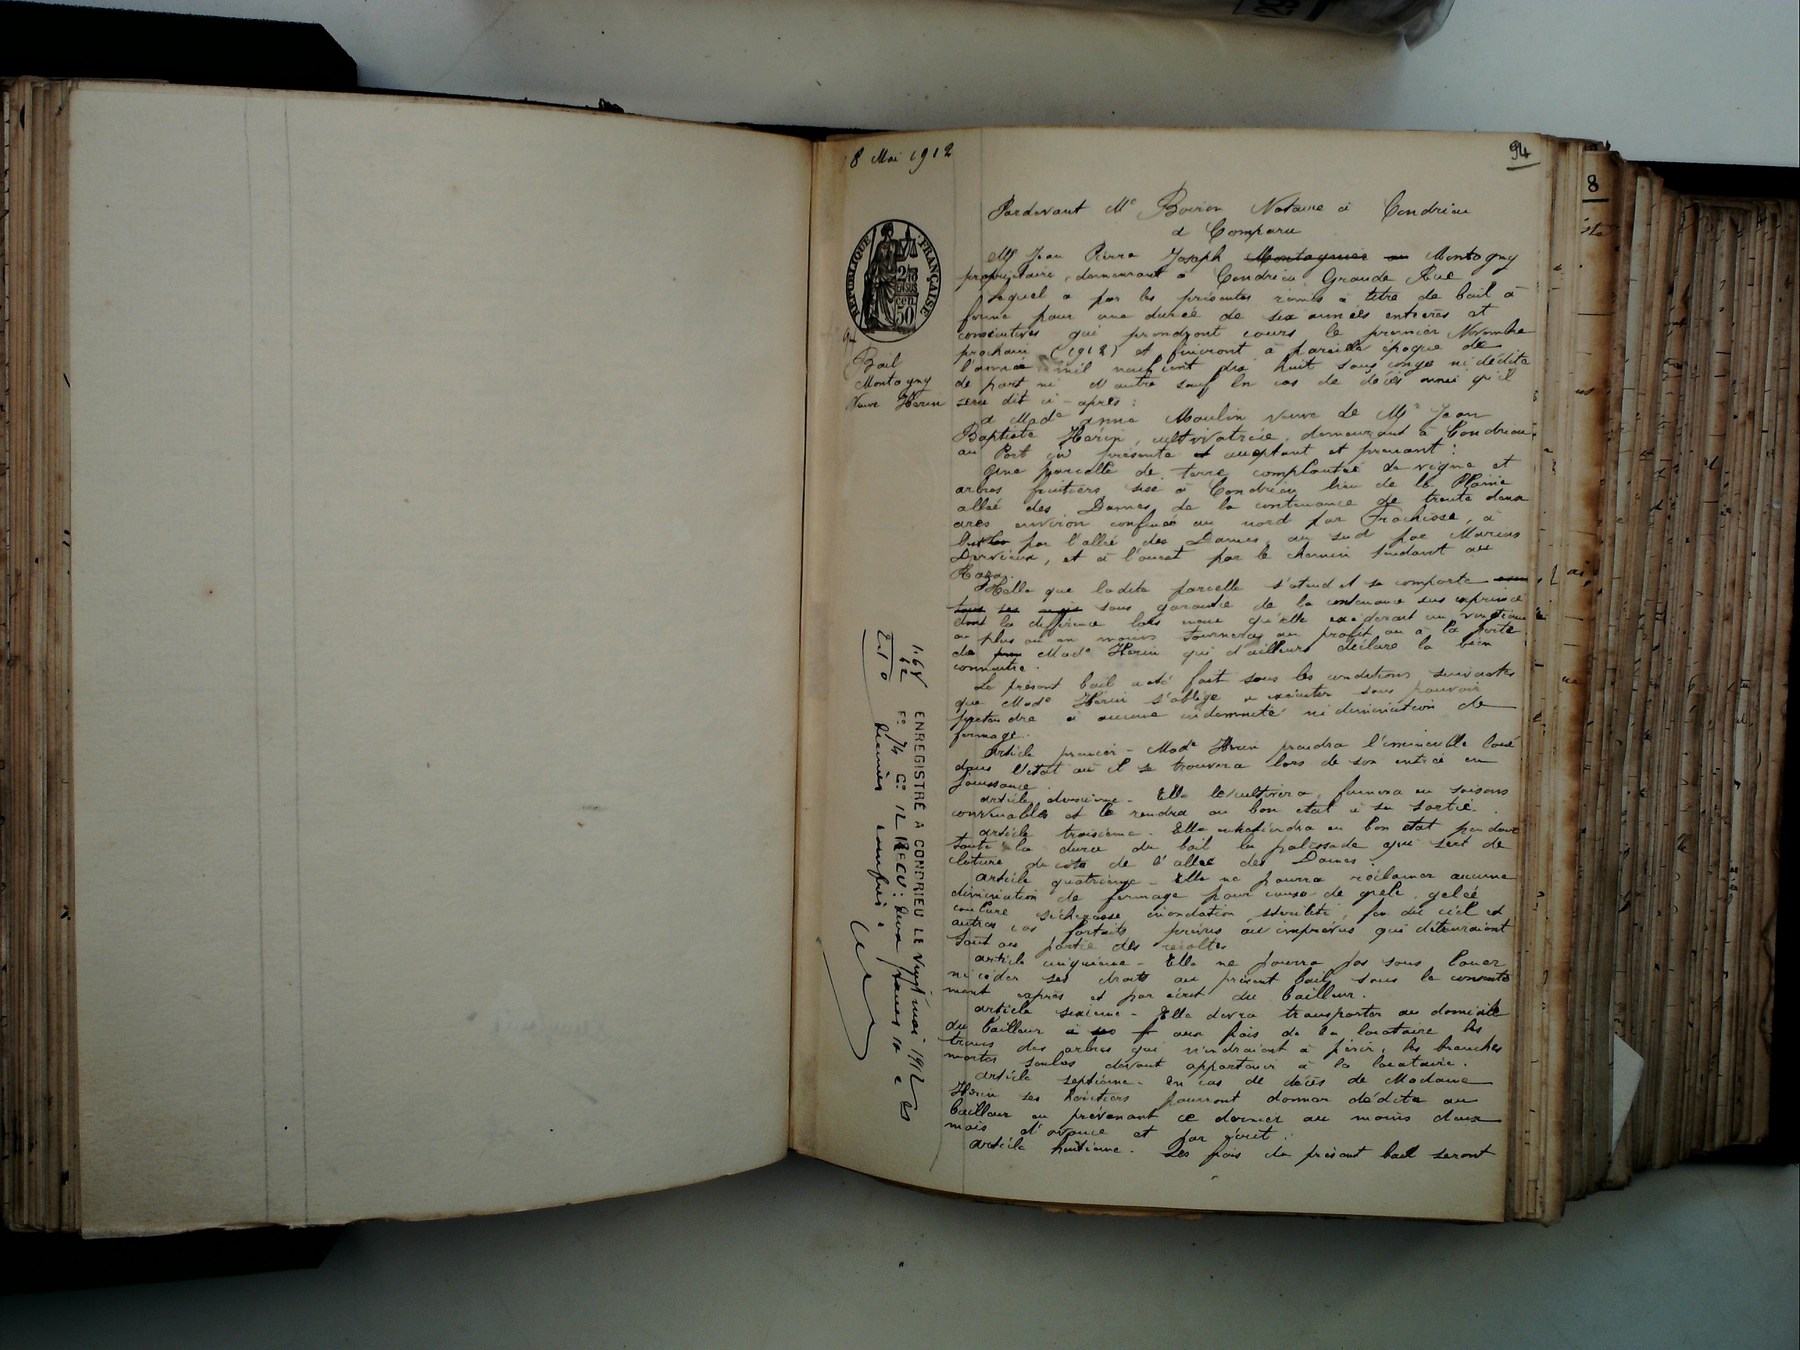 8 Mai 1912
94
Pardevant Me Notaire à Condrieu
a Comparu
Mr Jean Pierre Joseph Montagnier ou Montagny
propriétaire, demeurant à Condrieu Grande Rue
Lequel a par les présentes remis à titre de bail à
ferme pour une durée de six années entières et
consécutives qui prendront cours le premier Novembre
prochain (1912) et finiront à pareille époque de
l'année mil neuf cent dix huit sans congé ni dédite
de part ni d'autre sauf en cas de décès ainsi qu'il
sera dit ci-après :
à Made Anna Moulin veuve de Mr Jean
Baptiste Hérin, cultivatrice, demeurant à Condrieu
au Port ici présente et acceptant et prenant :
Une parcelle de terre complantée de vigne et
arbres fruitiers sise à Condrieu lieu de la Plaine
allée des Dames de la contenance de trente deux
ares environ confinée au nord par Frachisse, à
l'est par l'allée des Dames, au sud par Marius
Dervieux, et à l'ouest par le chemin tendant au
Telle que ladite parcelle s'étend et se comporte
sans garantie de la contenance sus exprimée
dont la différence lors même qu'elle excéderait un vingtième
en plus ou en moins tournera au profit ou à la perte
de Made Hérin qui d'ailleurs déclare la bien
connaitre.
Le présent bail a été fait sous les conditions suivantes
que Made Hérin s'oblige à exécuter sans pouvoir
prétendre à aucune indemnité ni diminution de
fermage.
Article premier - Made Hérin prendra l'immeuble loué
dans l'état où il se trouvera lors de son entrée en
jouissance.
Article deuxième - Elle le cultivera, fumera en saisons
convenables et le rendra en bon état à sa sortie.
Article troisième - Elle entretiendra en bon état pendant
toute la durée du bail la palissade qui sert de
cloture du coté de l'allée des Dames.
Article quatrième - Elle ne pourra réclamer aucune
diminution de fermage pour cause de grêle, gelée
coulure sécheresse inondation stérilité, feu du ciel et
autres cas fortuits prévus ou imprévus qui détruiraient
tout ou partie des récoltes
Article cinquième - Elle ne pourra pas sous louer
ni céder ses droits au présent bail sans le consente
ment exprès et par écrit du bailleur.
Article sixième - Elle devra transporter au domicile
du bailleur à ses f aux frais de la locataire les
troncs des arbres qui viendraient à périr, les branches
mortes seules devant appartenir à la locataire.
Article septième - En cas de décès de Madame
Hérin ses héritiers pourront donner dédite au
bailleur en prévenant ce dernier au moins deux
mois d'avance et par écrit.
Article huitième - Les frais du présent bail seront
RÉPUBLIQUE FRANÇAISE
2 fs
50
94
Bail
Montagny
Veuve Hérin
ENREGISTRÉ A CONDRIEU LE Vingt mai 1912
Fo 74 Co 12 RECU : deux francs
décimes compris
1.68
62
8